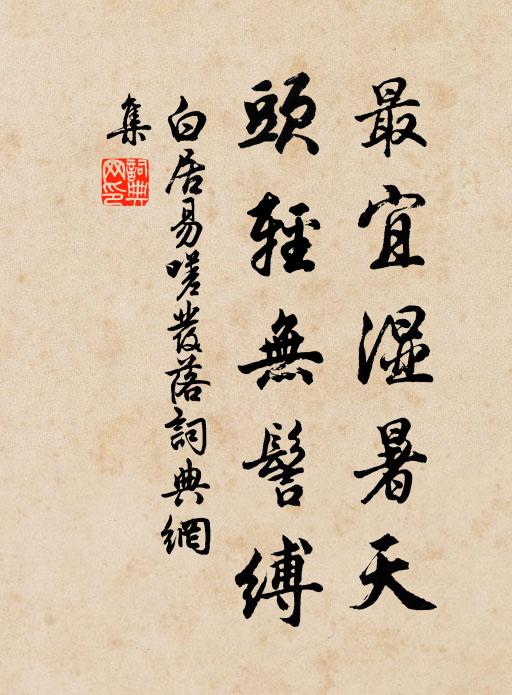 最宜濕暑天
頭輕無髻縛
白居易嗟髮落詞典網
集
詞典
網印